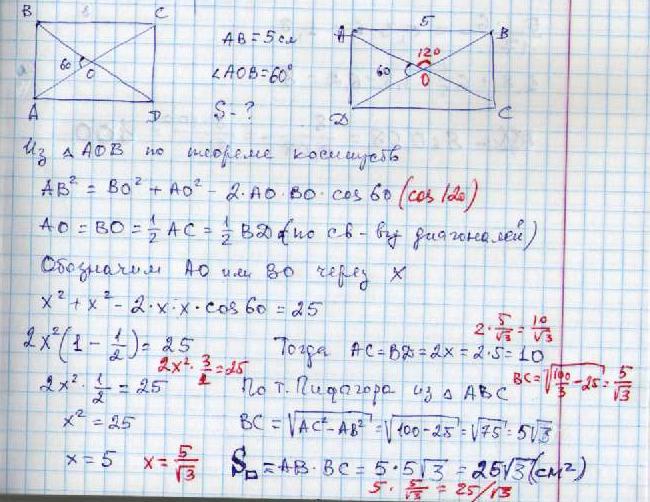 B 8 C
60 O
A D
AB = 5 см
∠AOB = 60°
S - ?
5
A B
120
60 O
D C
Из △ AOB по теореме косинусов
AB² = BO² + AO² - 2·AO·BO·cos 60 (cos 120)
AO = BO = 1/2 AC = 1/2 BD (по св-ву диагоналей)
Обозначим AO или BO через x
x² + x² - 2·x·x·cos 60 = 25
2x²(1 - 1/2) = 25
2x²·3/2 = 25
2·5/√3 = 10/√3
Тогда AC = BD = 2x = 2·5 = 10
BC = √(100/3 - 25) = 5/√3
2x²·1/2 = 25
По т. Пифагора из △ ABC
x² = 25
BC = √(AC² - AB²) = √(100 - 25) = √75 = 5√3
x = 5 x = 5/√3
S▭ = AB·BC = 5·5√3 = 25√3 (см²)
5·5/√3 = 25/√3